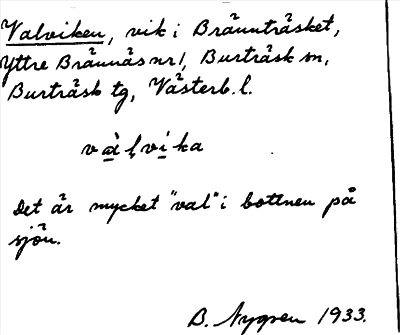 Valviken, vik i Brännträsket,
Yttre Brännäs nr 1, Burträsk sn,
Burträsk tg, Västerb. l.
vàlvika
Det är mycket "val" i bottnen på
sjön.
B. Nygren 1933.